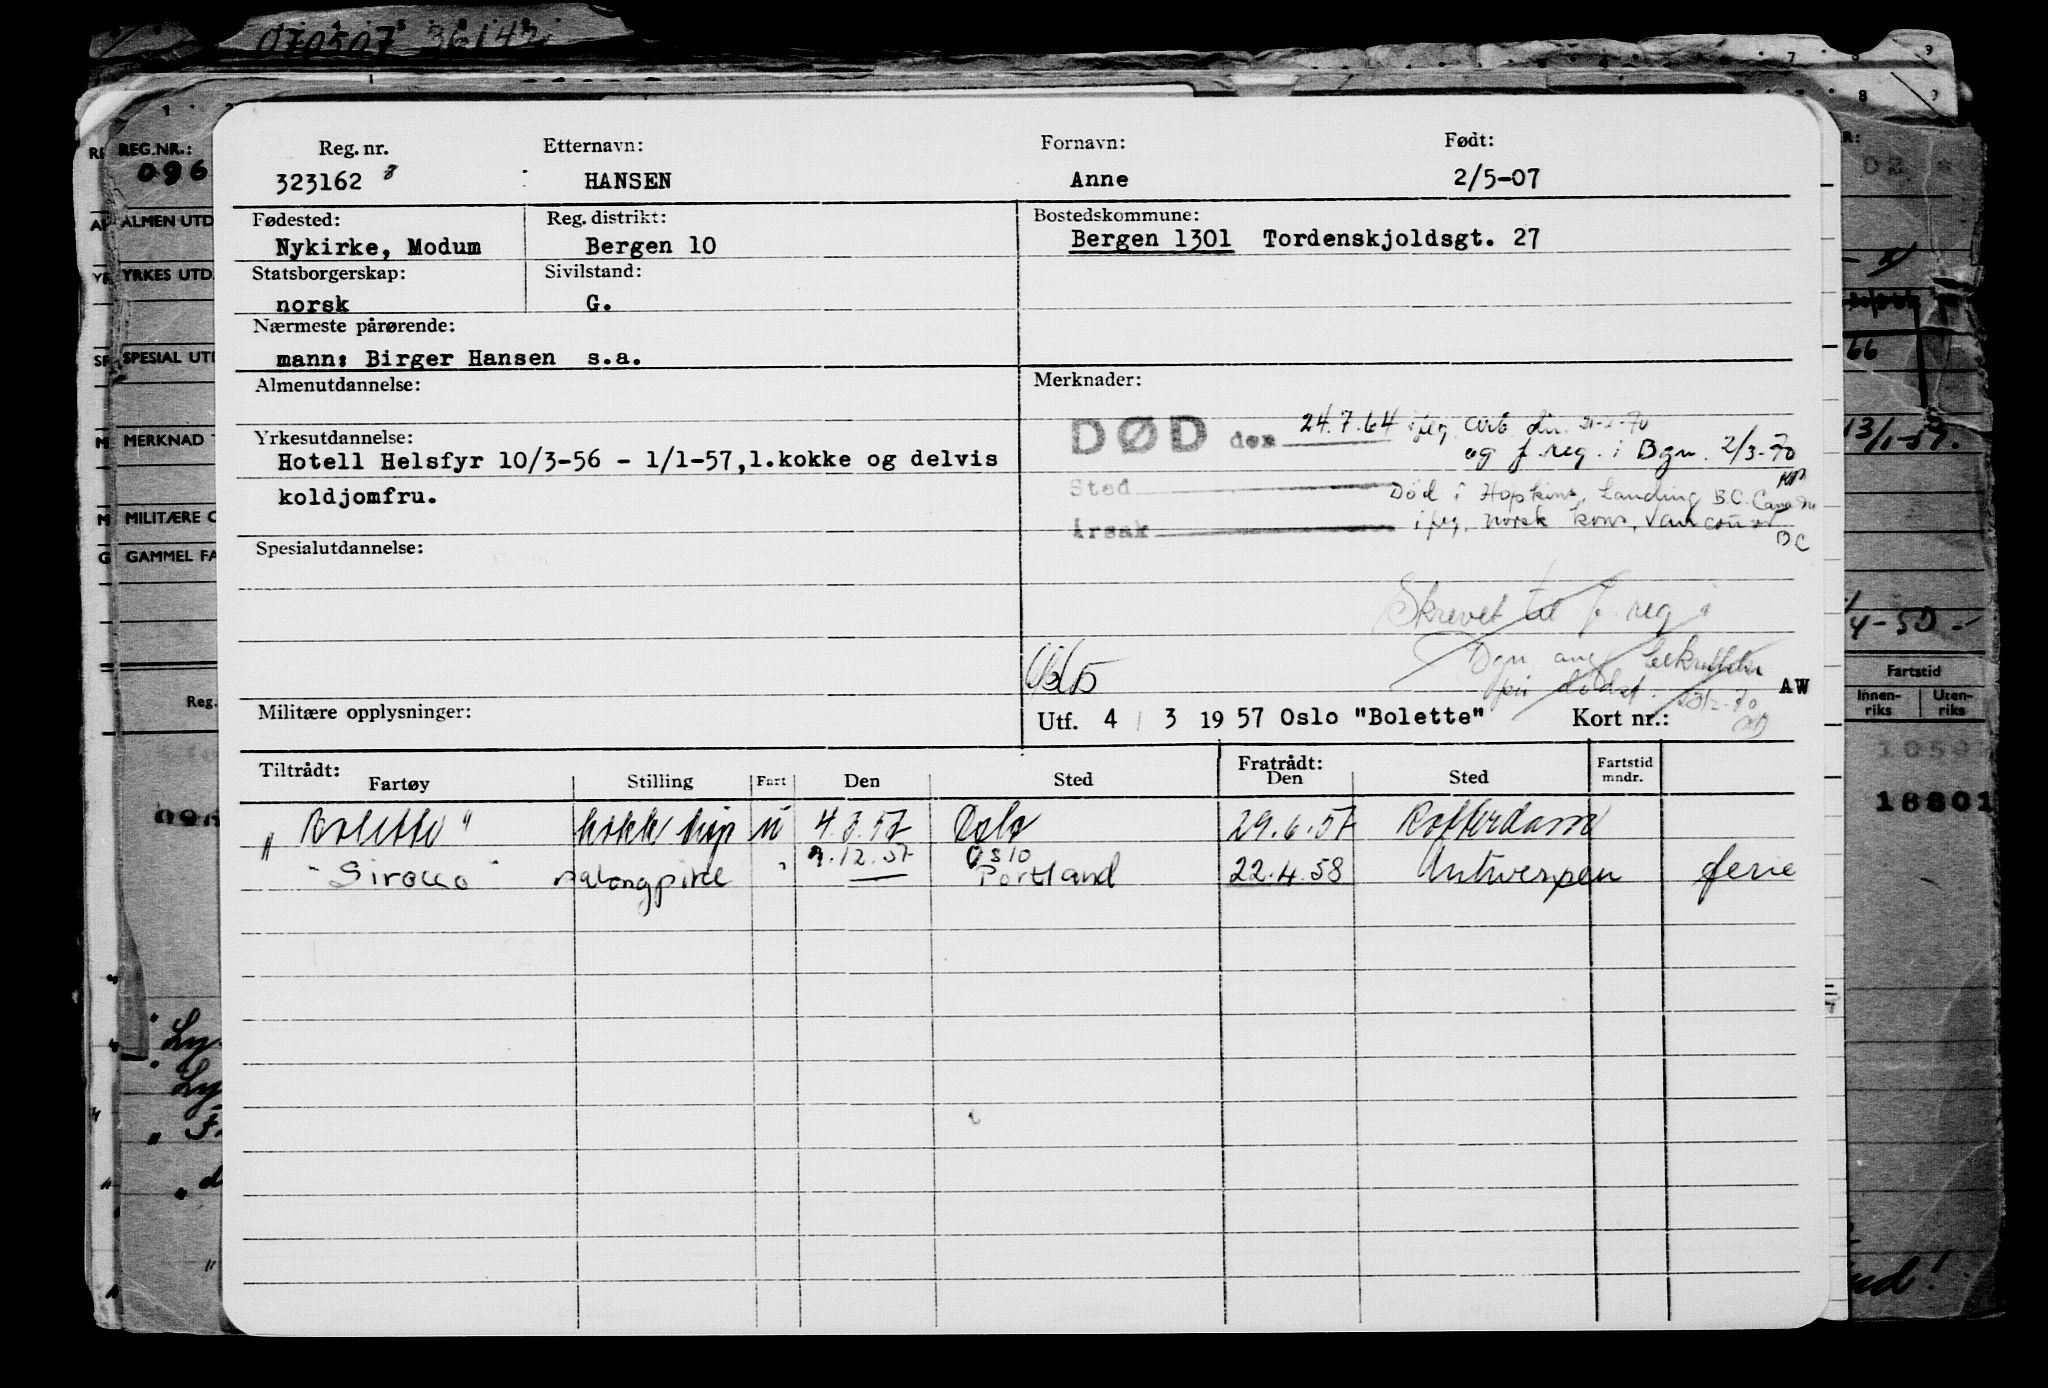 070507 36143
REG.NR.:
096
ALMEN UTD
YRKES UTD.
SPESIAL UTD
MERKNAD
MILITÆRE O
GAMMEL FA
Reg.
Reg. nr. Etternavn: Fornavn: Født:
323162 8 HANSEN Anne 2/5-07
Fødested: Reg. distrikt: Bostedskommune:
Nykirke, Modum Bergen 10 Bergen 1301 Tordenskjoldsgt. 27
Statsborgerskap: Sivilstand:
norsk G.
Nærmeste pårørende:
mann: Birger Hansen s.a.
Almenutdannelse: Merknader:
DØD den 24.7.64 iflg. arb. dir. 21-2-70
Yrkesutdannelse: og f.reg. i Bgn. 2/3-70
Hotell Helsfyr 10/3-56 - 1/1-57,1.kokke og delvis
koldjomfru.
Sted Død i Hopkins, Landing B.C. Canada
Årsak iflg. norsk kons, Vancouver
BC
Spesialutdannelse:
Skrevet til f.reg i
Bgn ang bekreftelse
på dødsf.
AW
Militære opplysninger: Utf. 4 / 3 19 57 Oslo "Bolette" Kort nr.:
Tiltrådt: Fratrådt: Fartstid
Fartøy Stilling Fart Den Sted Den Sted mndr.
"Bolette" kokk u 4.3.57 Oslo 29.6.57 Rotterdam
9.12.57 Oslo
"Sirocco" salongpike " Portland 22.4.58 Antwerpen ferie
66
13/1-59.
4-50
Fartstid
Innen- Uten-
riks riks
18801